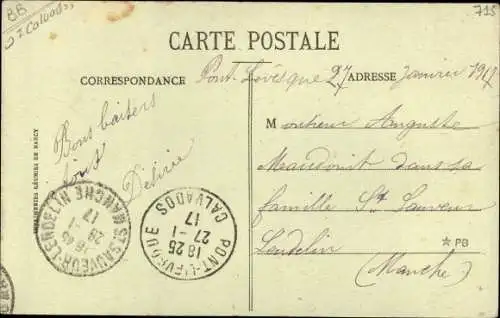 BB
Calvados
715
CARTE POSTALE
CORRESPONDANCE
Pont-Lévesque 27
ADRESSE
Janvier 1917
Bons baisers
Désirée
Monsieur Auguste
Maudouit dans sa
famille St Sauveur
Lendelin
(Manche)
IMPRIMERIES RÉUNIES DE NANCY
ST SAUVEUR-LENDELIN
MANCHE
28-1
17
PONT-L'EVEQUE
CALVADOS
18 25
27-1
17
*PB